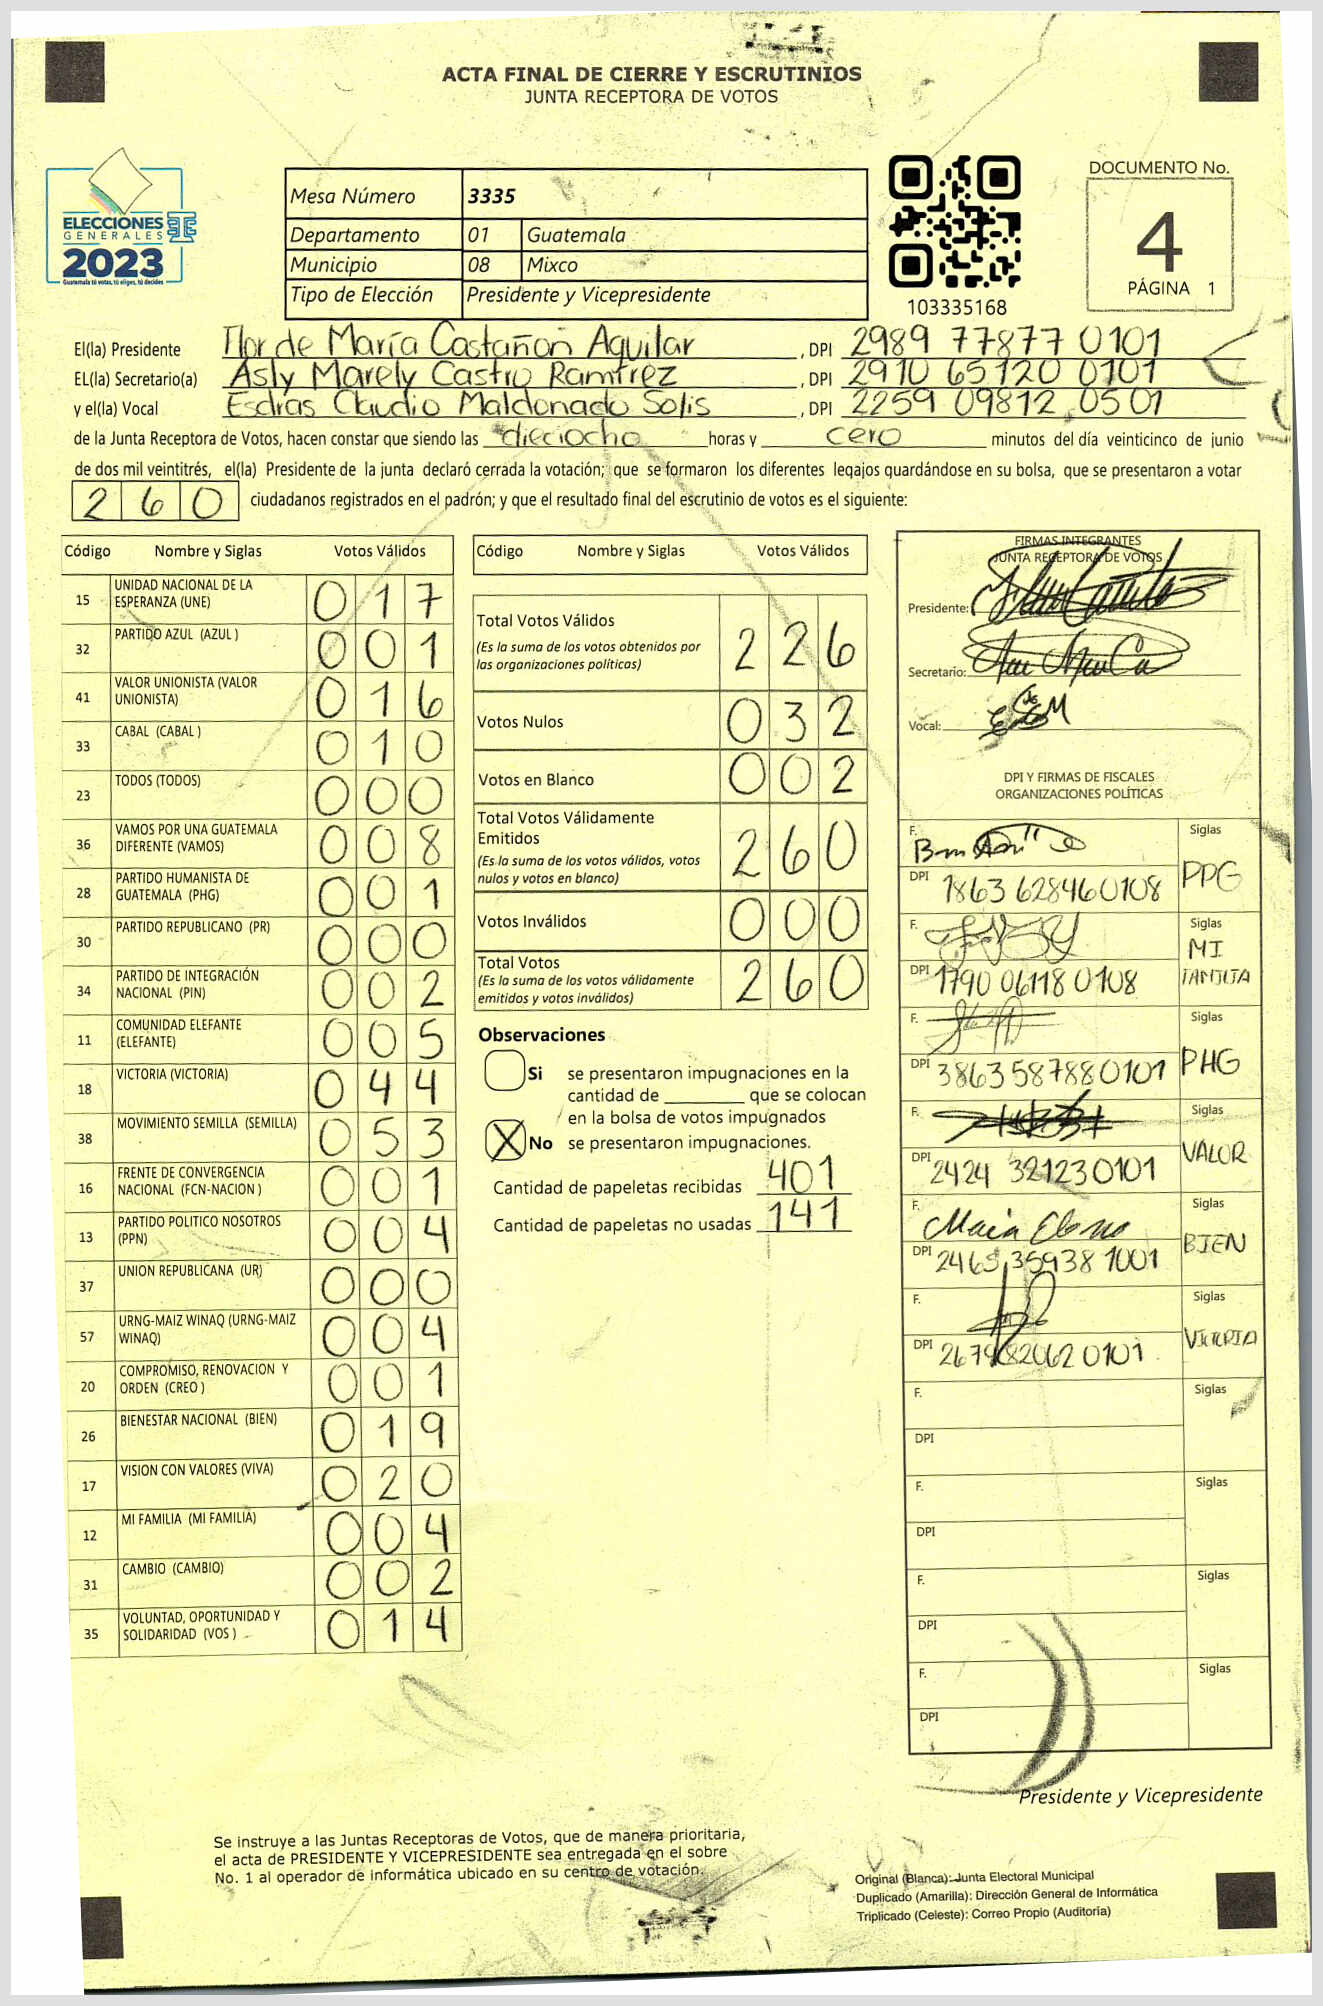 ACTA FINAL DE CIERRE Y ESCRUTINIOS
JUNTA RECEPTORA DE VOTOS
ELECCIONES
GENERALES
2023
Guatemala tú votas, tú eliges, tú decides
Mesa Número 3335
Departamento 01 Guatemala
Municipio 08 Mixco
Tipo de Elección Presidente y Vicepresidente
103335168
DOCUMENTO No.
4
PÁGINA 1
El(la) Presidente Flor de María Castañon Aguilar , DPI 2989 77877 0101
EL(la) Secretario(a) Asly Marely Castro Ramírez , DPI 2910 65120 0101
y el(la) Vocal Esdras Claudio Maldonado Solis , DPI 2259 09812 0501
de la Junta Receptora de Votos, hacen constar que siendo las dieciocho horas y cero minutos del día veinticinco de junio
de dos mil veintitrés, el(la) Presidente de la junta declaró cerrada la votación; que se formaron los diferentes legajos guardándose en su bolsa, que se presentaron a votar
260 ciudadanos registrados en el padrón; y que el resultado final del escrutinio de votos es el siguiente:
Código Nombre y Siglas Votos Válidos
15 UNIDAD NACIONAL DE LA ESPERANZA (UNE) 017
32 PARTIDO AZUL (AZUL ) 001
41 VALOR UNIONISTA (VALOR UNIONISTA) 016
33 CABAL (CABAL ) 010
23 TODOS (TODOS) 000
36 VAMOS POR UNA GUATEMALA DIFERENTE (VAMOS) 008
28 PARTIDO HUMANISTA DE GUATEMALA (PHG) 001
30 PARTIDO REPUBLICANO (PR) 000
34 PARTIDO DE INTEGRACIÓN NACIONAL (PIN) 002
11 COMUNIDAD ELEFANTE (ELEFANTE) 005
18 VICTORIA (VICTORIA) 044
38 MOVIMIENTO SEMILLA (SEMILLA) 053
16 FRENTE DE CONVERGENCIA NACIONAL (FCN-NACION ) 001
13 PARTIDO POLITICO NOSOTROS (PPN) 004
37 UNION REPUBLICANA (UR) 000
57 URNG-MAIZ WINAQ (URNG-MAIZ WINAQ) 004
20 COMPROMISO, RENOVACION Y ORDEN (CREO ) 001
26 BIENESTAR NACIONAL (BIEN) 019
17 VISION CON VALORES (VIVA) 020
12 MI FAMILIA (MI FAMILIA) 004
31 CAMBIO (CAMBIO) 002
35 VOLUNTAD, OPORTUNIDAD Y SOLIDARIDAD (VOS ) 014
Código Nombre y Siglas Votos Válidos
Total Votos Válidos 226
(Es la suma de los votos obtenidos por
las organizaciones políticas)
Votos Nulos 032
Votos en Blanco 002
Total Votos Válidamente
Emitidos 260
(Es la suma de los votos válidos, votos
nulos y votos en blanco)
Votos Inválidos 000
Total Votos 260
(Es la suma de los votos válidamente
emitidos y votos inválidos)
Observaciones
Si se presentaron impugnaciones en la
cantidad de ________ que se colocan
en la bolsa de votos impugnados
X No se presentaron impugnaciones.
Cantidad de papeletas recibidas 401
Cantidad de papeletas no usadas 141
FIRMAS INTEGRANTES
JUNTA RECEPTORA DE VOTOS
Presidente:
Secretario:
Vocal:
DPI Y FIRMAS DE FISCALES
ORGANIZACIONES POLÍTICAS
F. Siglas
DPI 1863 62846 0108 PPG
F. Siglas
DPI 1790 06118 0108 MI FAMILIA
F. Siglas
DPI 3863 58788 0101 PHG
F. Siglas
DPI 2424 32123 0101 VALOR
F. Siglas
DPI 2465 35938 1001 BIEN
F. Siglas
DPI 2679 82062 0101 VICTORIA
F. Siglas
DPI
F. Siglas
DPI
F. Siglas
DPI
F. Siglas
DPI
Presidente y Vicepresidente
Se instruye a las Juntas Receptoras de Votos, que de manera prioritaria,
el acta de PRESIDENTE Y VICEPRESIDENTE sea entregada en el sobre
No. 1 al operador de informática ubicado en su centro de votación.
Original (Blanca): Junta Electoral Municipal
Duplicado (Amarilla): Dirección General de Informática
Triplicado (Celeste): Correo Propio (Auditoría)